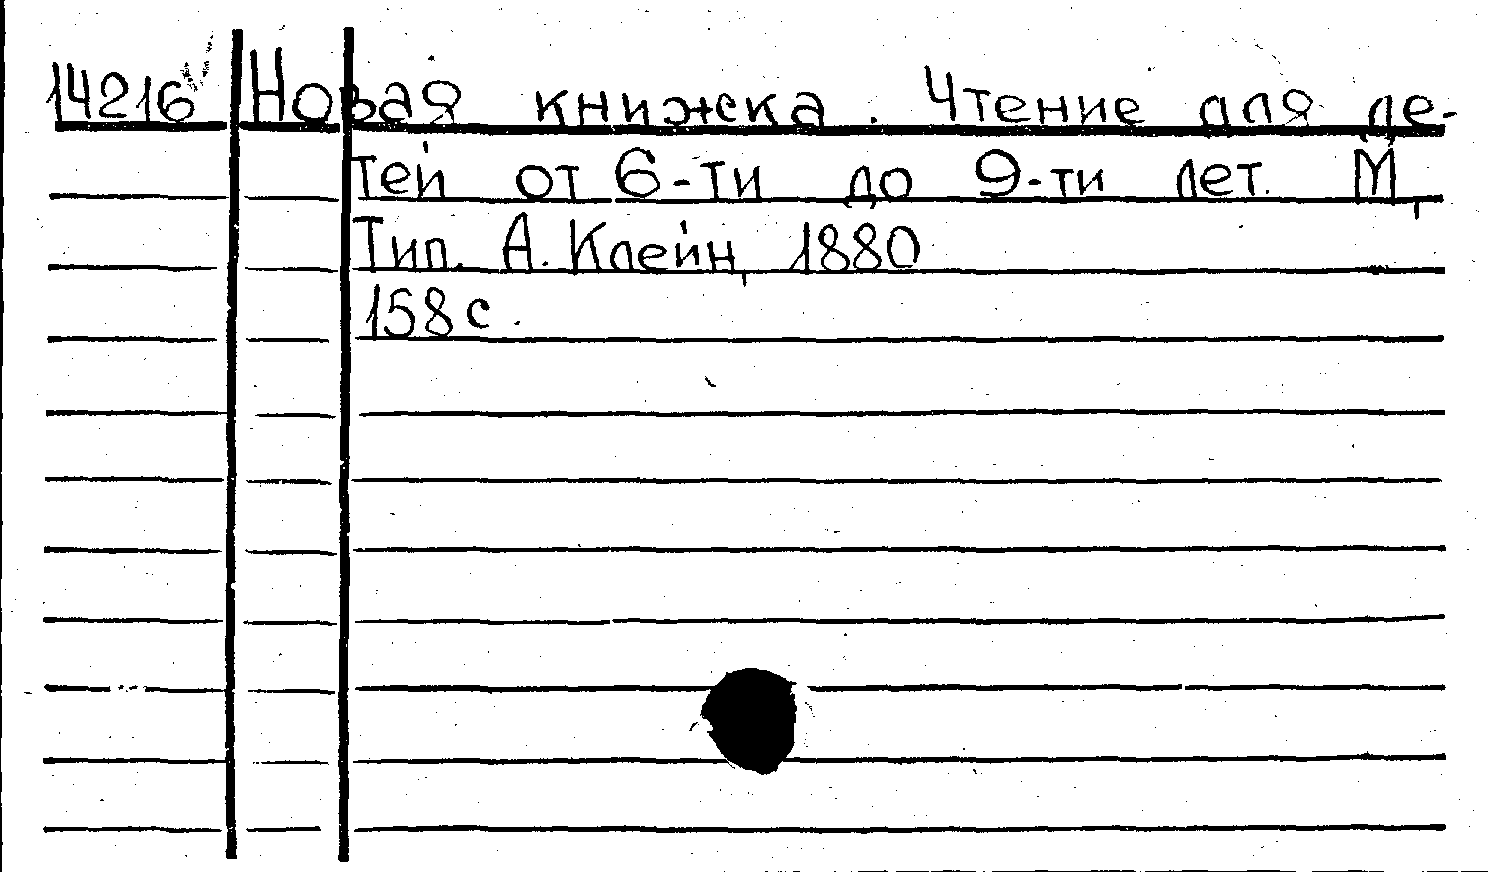 14216 Новая книжка. Чтение для де-
тей от 6-ти до 9-ти лет. М,
Тип. А. Клейн, 1880
158 с.